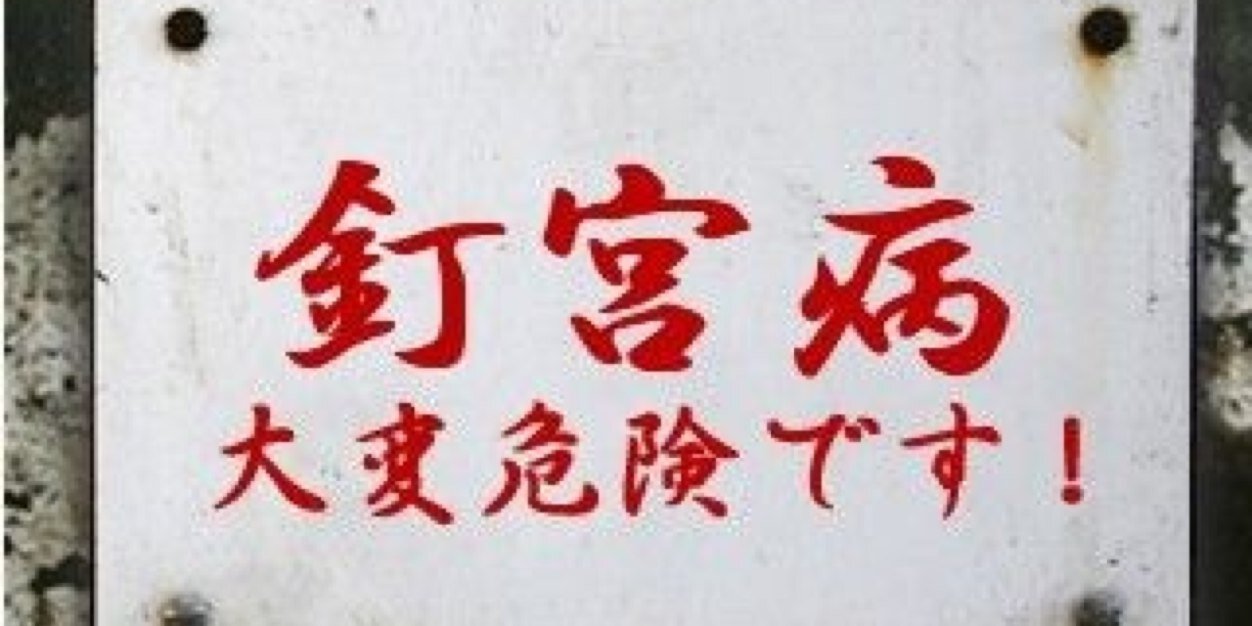 釘宮病
大変危険です！